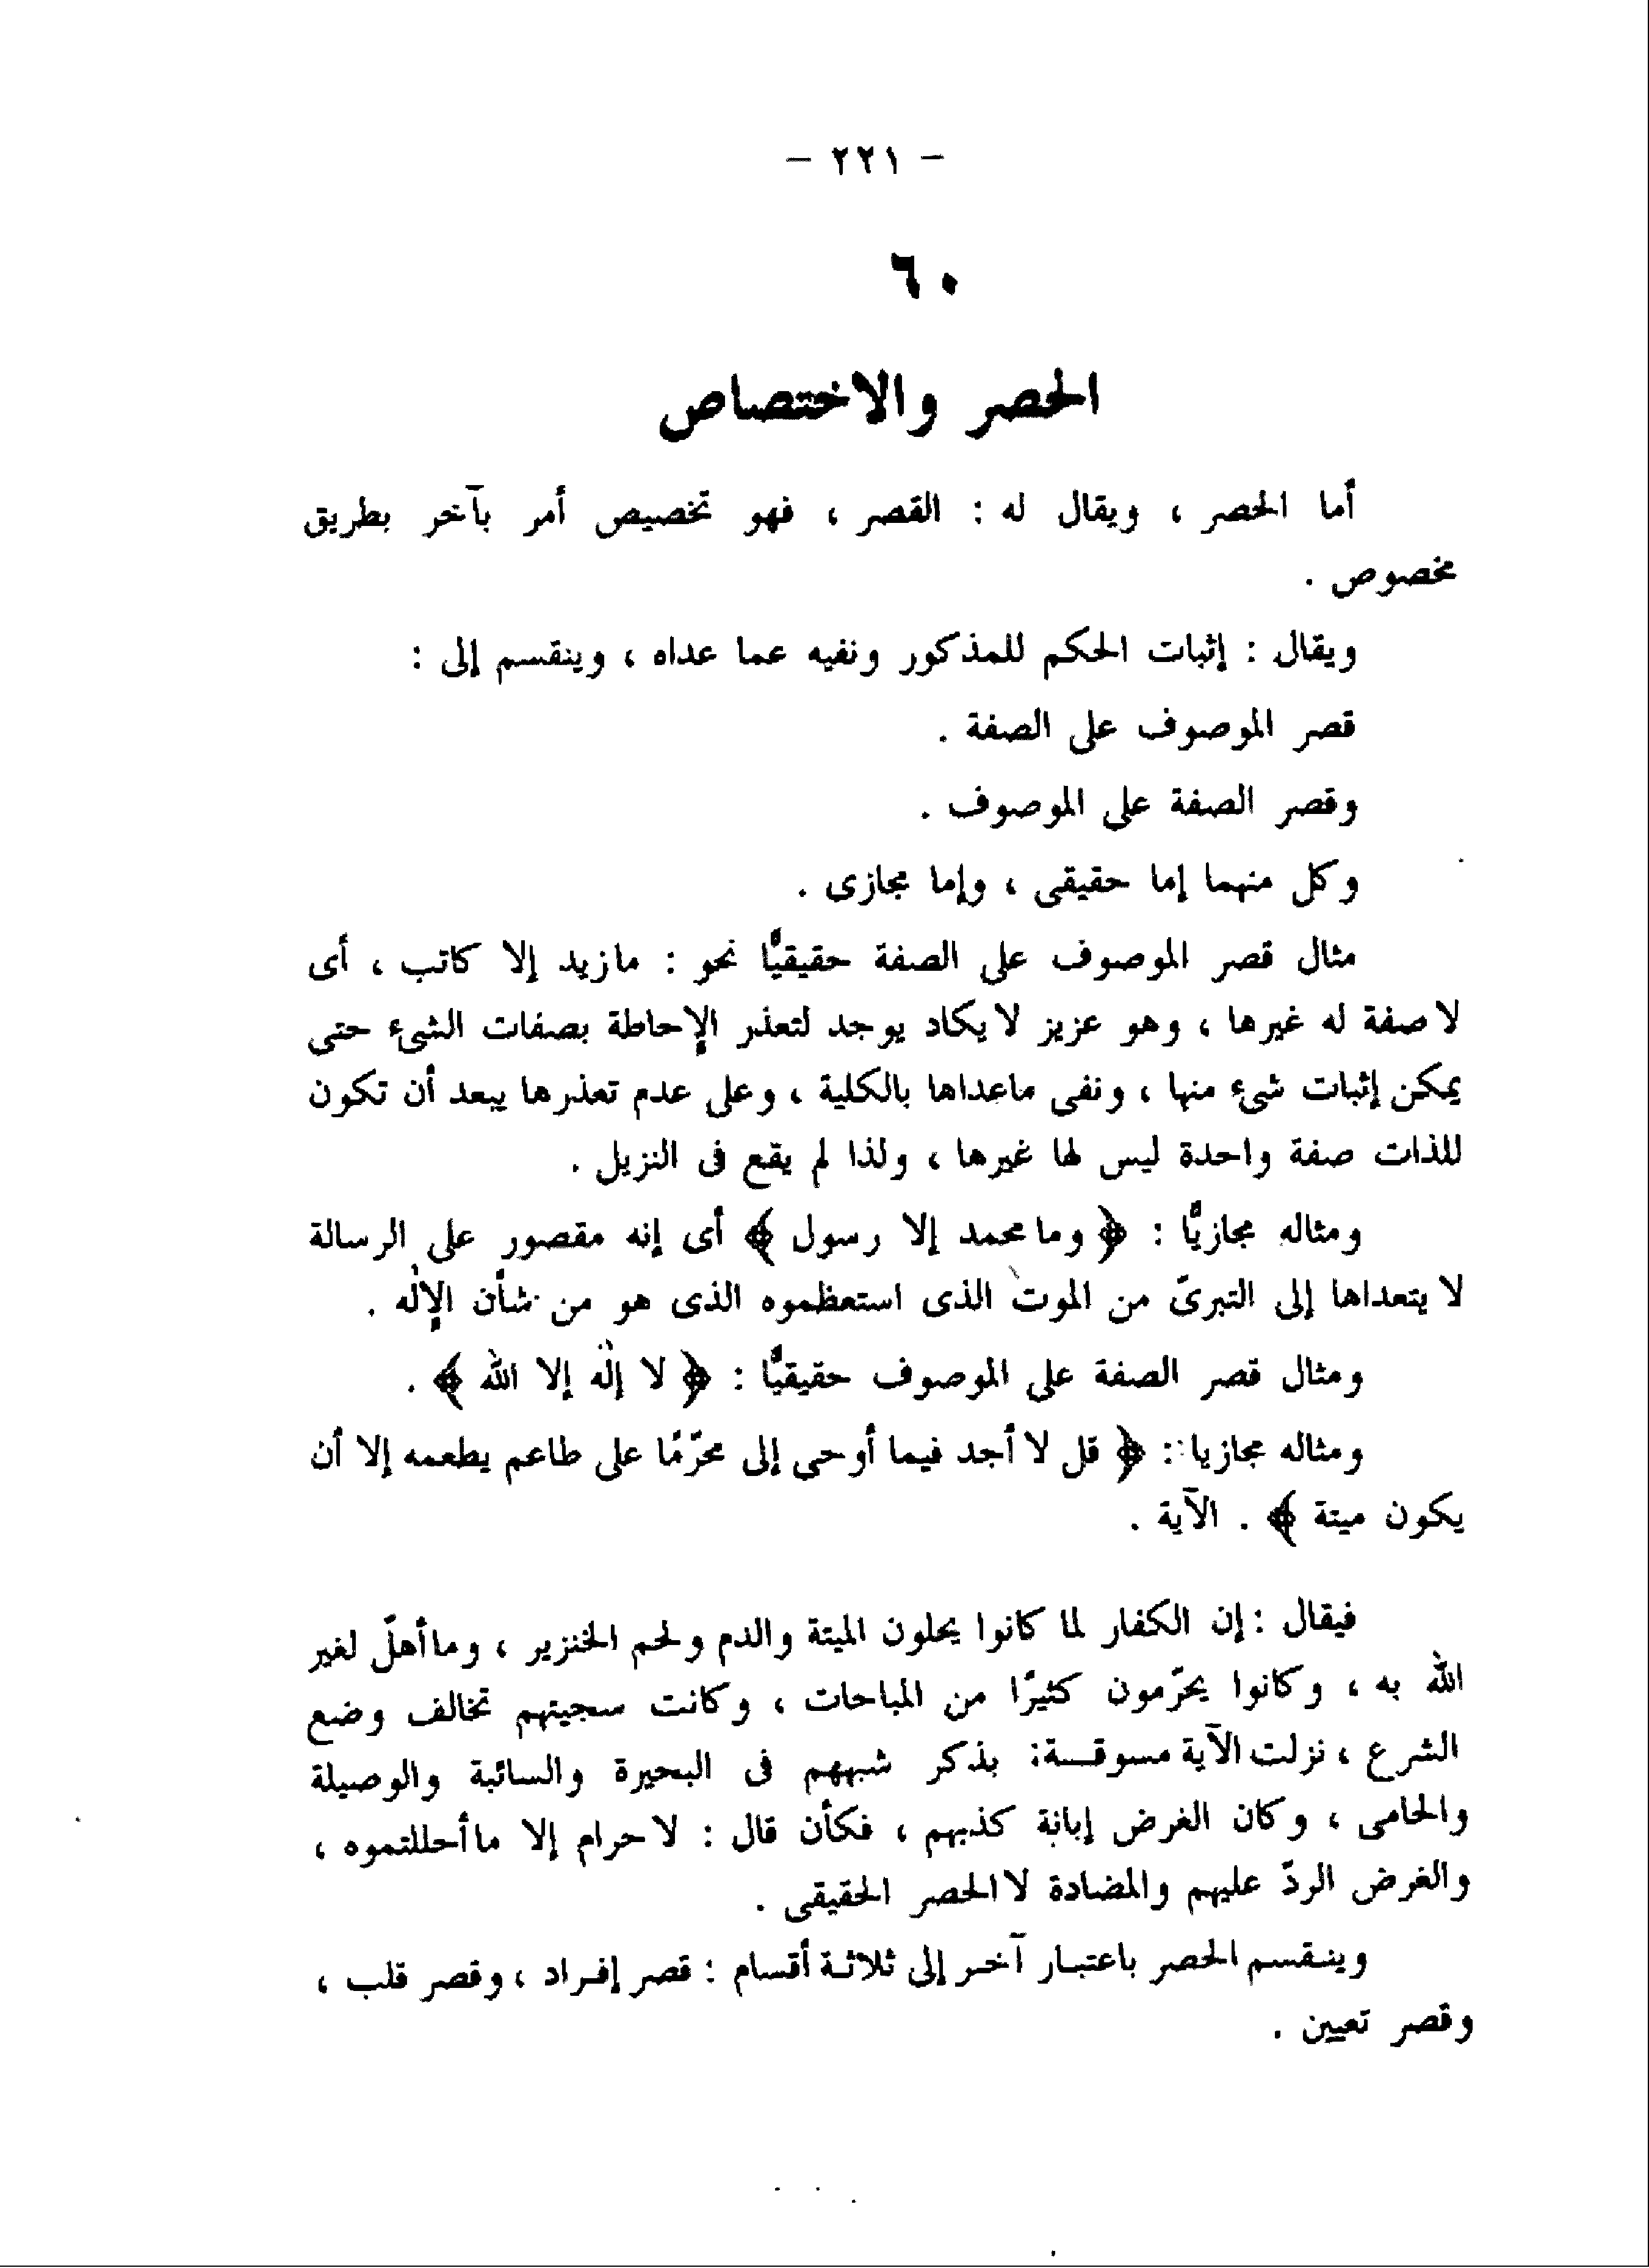 – ٢٢١ –
٦٠
الحصر والاختصاص
أما الحصر ، ويقال له : القصر ، فهو تخصيص أمر بآخر بطريق
مخصوص .
ويقال : إثبات الحكم للمذكور ونفيه عما عداه ، وينقسم إلى :
قصر الموصوف على الصفة .
وقصر الصفة على الموصوف .
وكل منهما إما حقيقى ، وإما مجازى .
مثال قصر الموصوف على الصفة حقيقيًّا نحو : مازيد إلا كاتب ، أى
لا صفة له غيرها ، وهو عزيز لا يكاد يوجد لتعذر الإحاطة بصفات الشىء حتى
يمكن إثبات شىء منها ، ونفى ماعداها بالكلية ، وعلى عدم تعذرها يبعد أن تكون
للذات صفة واحدة ليس لها غيرها ، ولذا لم يقع فى النزيل .
ومثاله مجازيًّا : ﴿ وما محمد إلا رسول ﴾ أى إنه مقصور على الرسالة
لا يتعداها إلى التبرىّ من الموت الذى استعظموه الذى هو من شأن الإلٰه .
ومثال قصر الصفة على الموصوف حقيقيًّا : ﴿ لا إلٰه إلا الله ﴾ .
ومثاله مجازيا : ﴿ قل لا أجد فيما أوحى إلى محرّمًا على طاعم يطعمه إلا أن
يكون ميتة ﴾ . الآية .
فيقال : إن الكفار لما كانوا يحلون الميتة والدم ولحم الخنزير ، وما أهلّ لغير
الله به ، وكانوا يحرّمون كثيرًا من المباحات ، وكانت سجيتهم تخالف وضع
الشرع ، نزلت الآية مسوقة : بذكر شبههم فى البحيرة والسائبة والوصيلة
والحامى ، وكان الغرض إبانة كذبهم ، فكأن قال : لا حرام إلا ما أحللتموه ،
والغرض الردّ عليهم والمضادة لا الحصر الحقيقى .
وينقسم الحصر باعتبار آخر إلى ثلاثة أقسام : قصر إفراد ، وقصر قلب ،
وقصر تعيين .